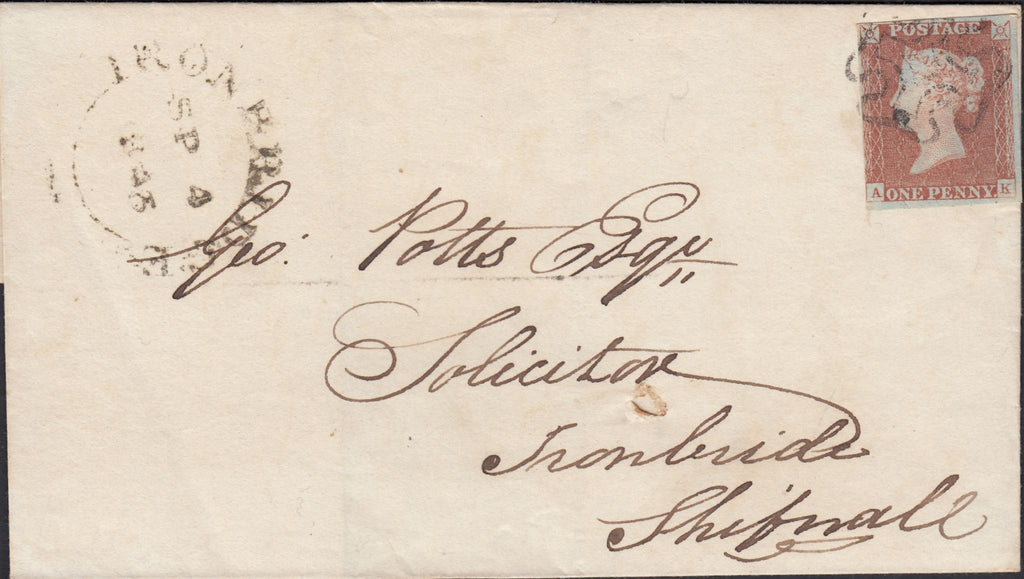 IRONBRIDGE
SP 4
1845
POSTAGE
A ONE PENNY. K
Geo. Potts Esqr
Solicitor
Ironbride
Shifnall